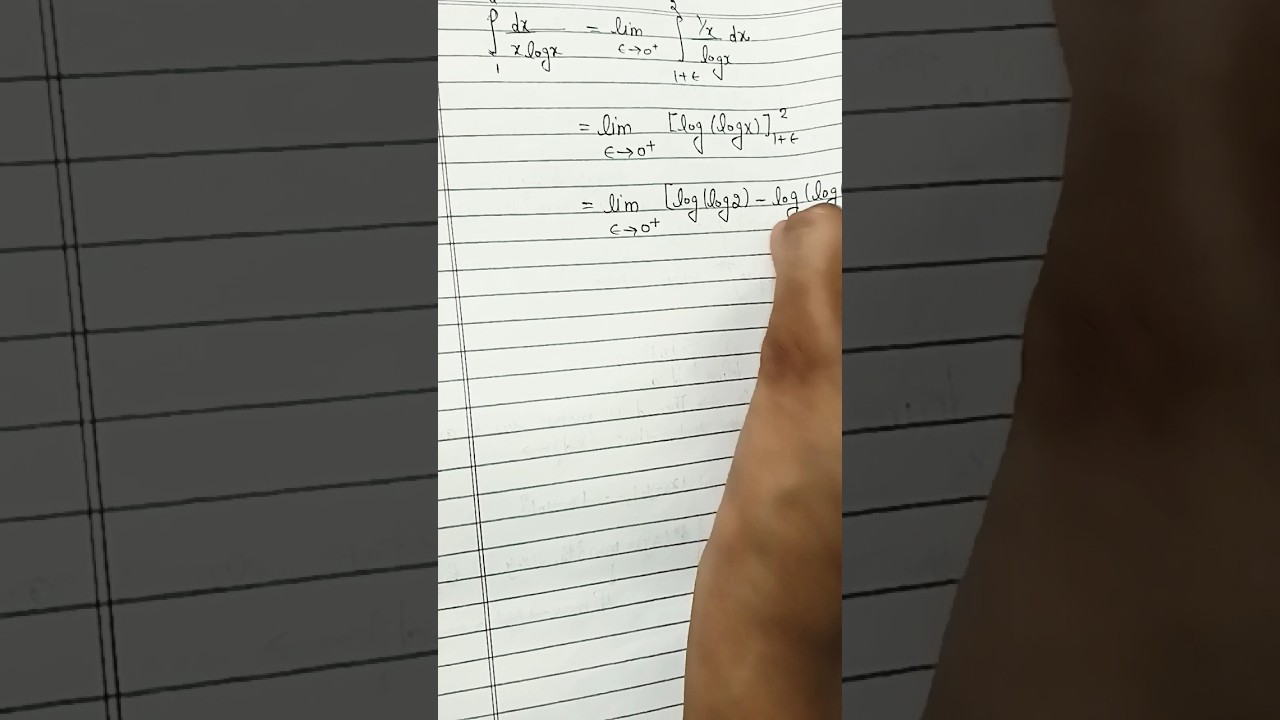 ∫₁² dx / x logx = lim ε→0⁺ ∫₁₊ε² 1/x / logx dx
= lim ε→0⁺ [log(logx)]₁₊ε²
= lim ε→0⁺ [log(log2) - log(log